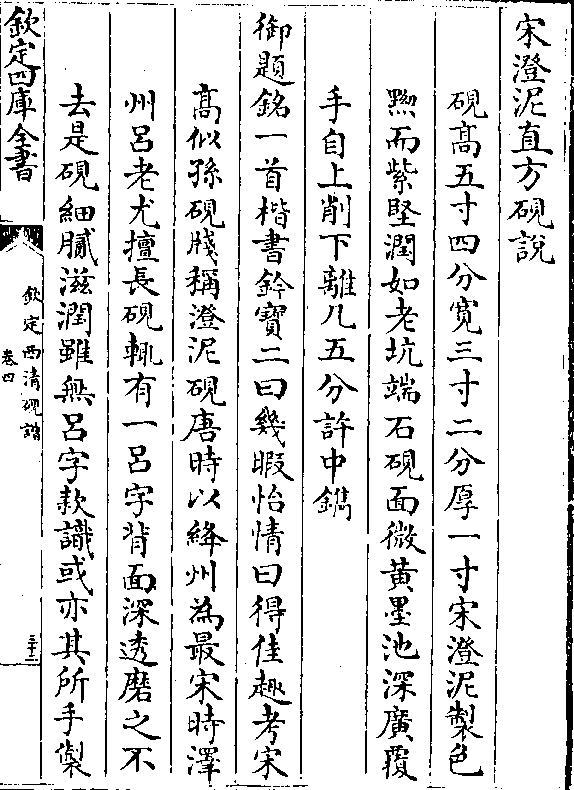 宋澄泥直方硯說
硯高五寸四分寬三寸二分厚一寸宋澄泥製色
黝而紫堅潤如老坑端石硯面微黃墨池深廣覆
手自上削下離几五分許中鐫
御題銘一首楷書鈐寶二曰幾暇怡情曰得佳趣考宋
高似孫硯牋稱澄泥硯唐時以絳州為最宋時澤
州呂老尤擅長硯輒有一呂字背面深透磨之不
去是硯細膩滋潤雖無呂字款識或亦其所手製
欽定四庫全書
欽定西清硯譜
卷四
三十三